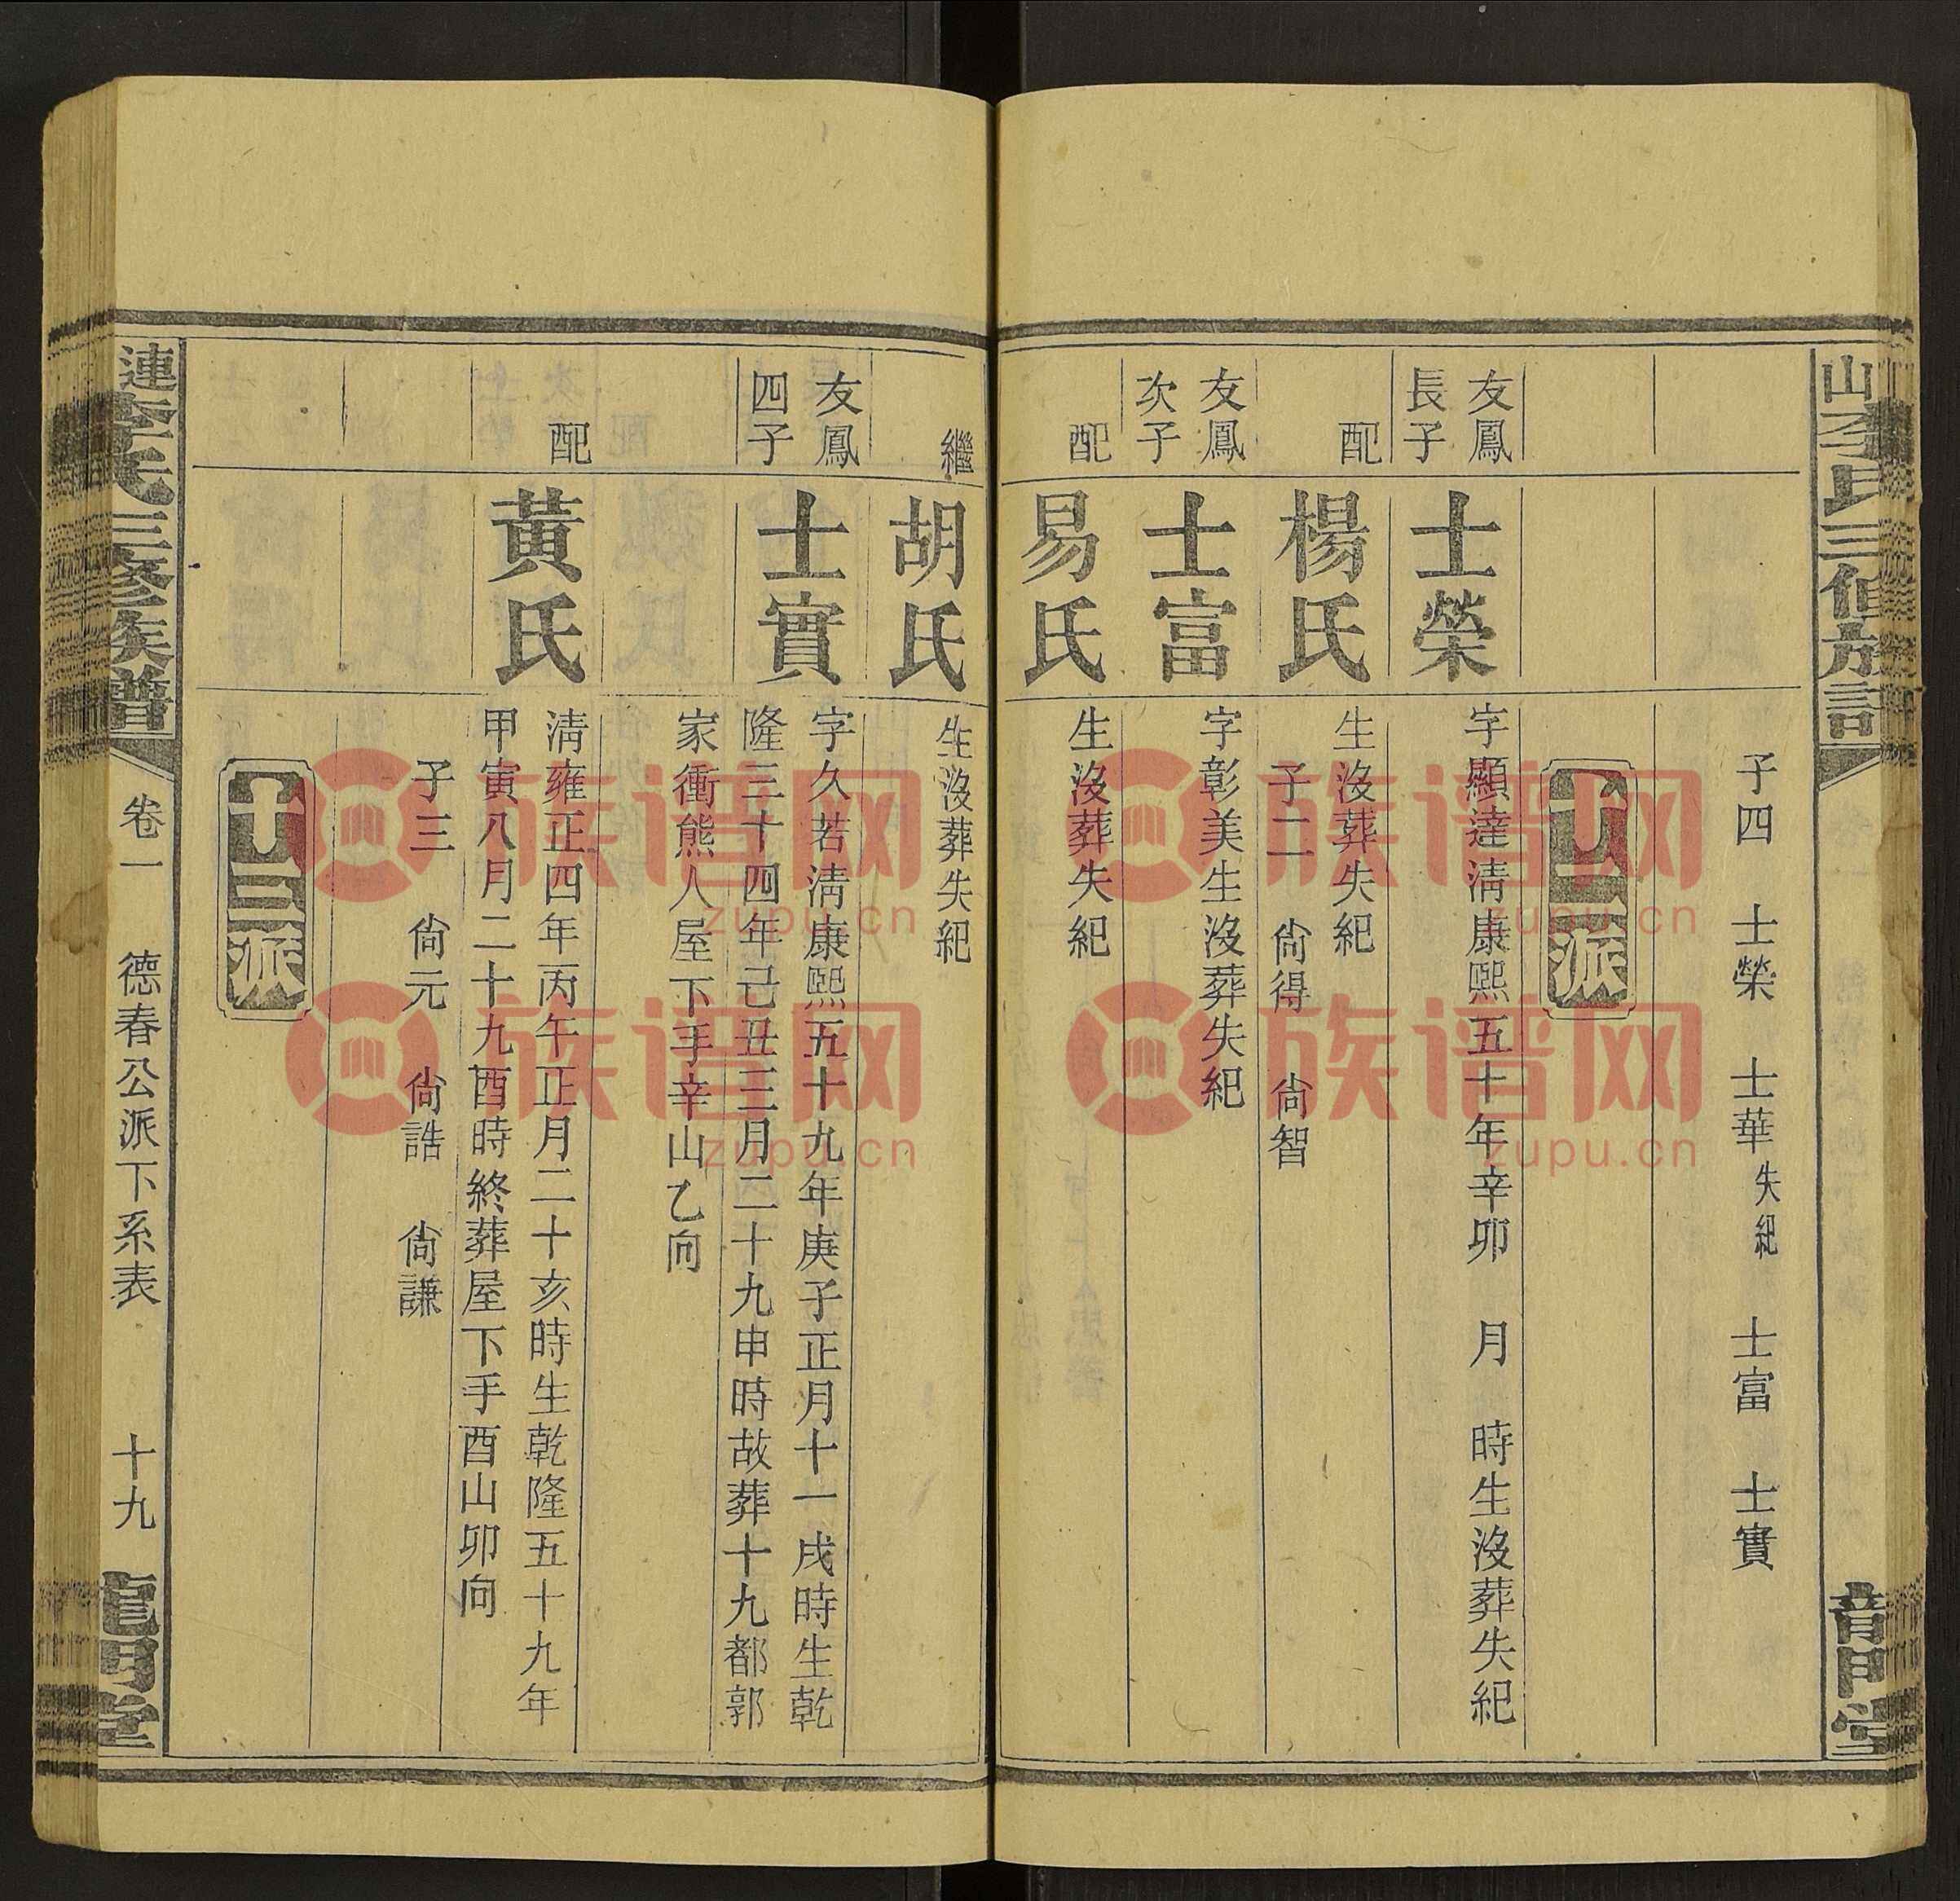 山李氏三修族譜
龍門堂
子四　士榮　士華失紀　士富　士實
十二派
友鳳
長子
士榮
字顯達淸康熙五十年辛卯　月　時生沒葬失紀
配
楊氏
生沒葬失紀
子二　尙得　尙智
友鳳
次子
士富
字彰美生沒葬失紀
配
易氏
生沒葬失紀
繼
胡氏
生沒葬失紀
友鳳
四子
士實
字久若淸康熙五十九年庚子正月十一戌時生乾
隆三十四年己丑三月二十九申時故葬十九都郭
家衝熊人屋下手辛山乙向
配
黃氏
淸雍正四年丙午正月二十亥時生乾隆五十九年
甲寅八月二十九酉時終葬屋下手酉山卯向
子三　尙元　尙誥　尙謙
十三派
漣李氏三修族譜
卷一　德春公派下系表　十九
龍門堂
族谱网
zupu.cn
族谱网
zupu.cn
族谱网
zupu.cn
族谱网
zupu.cn